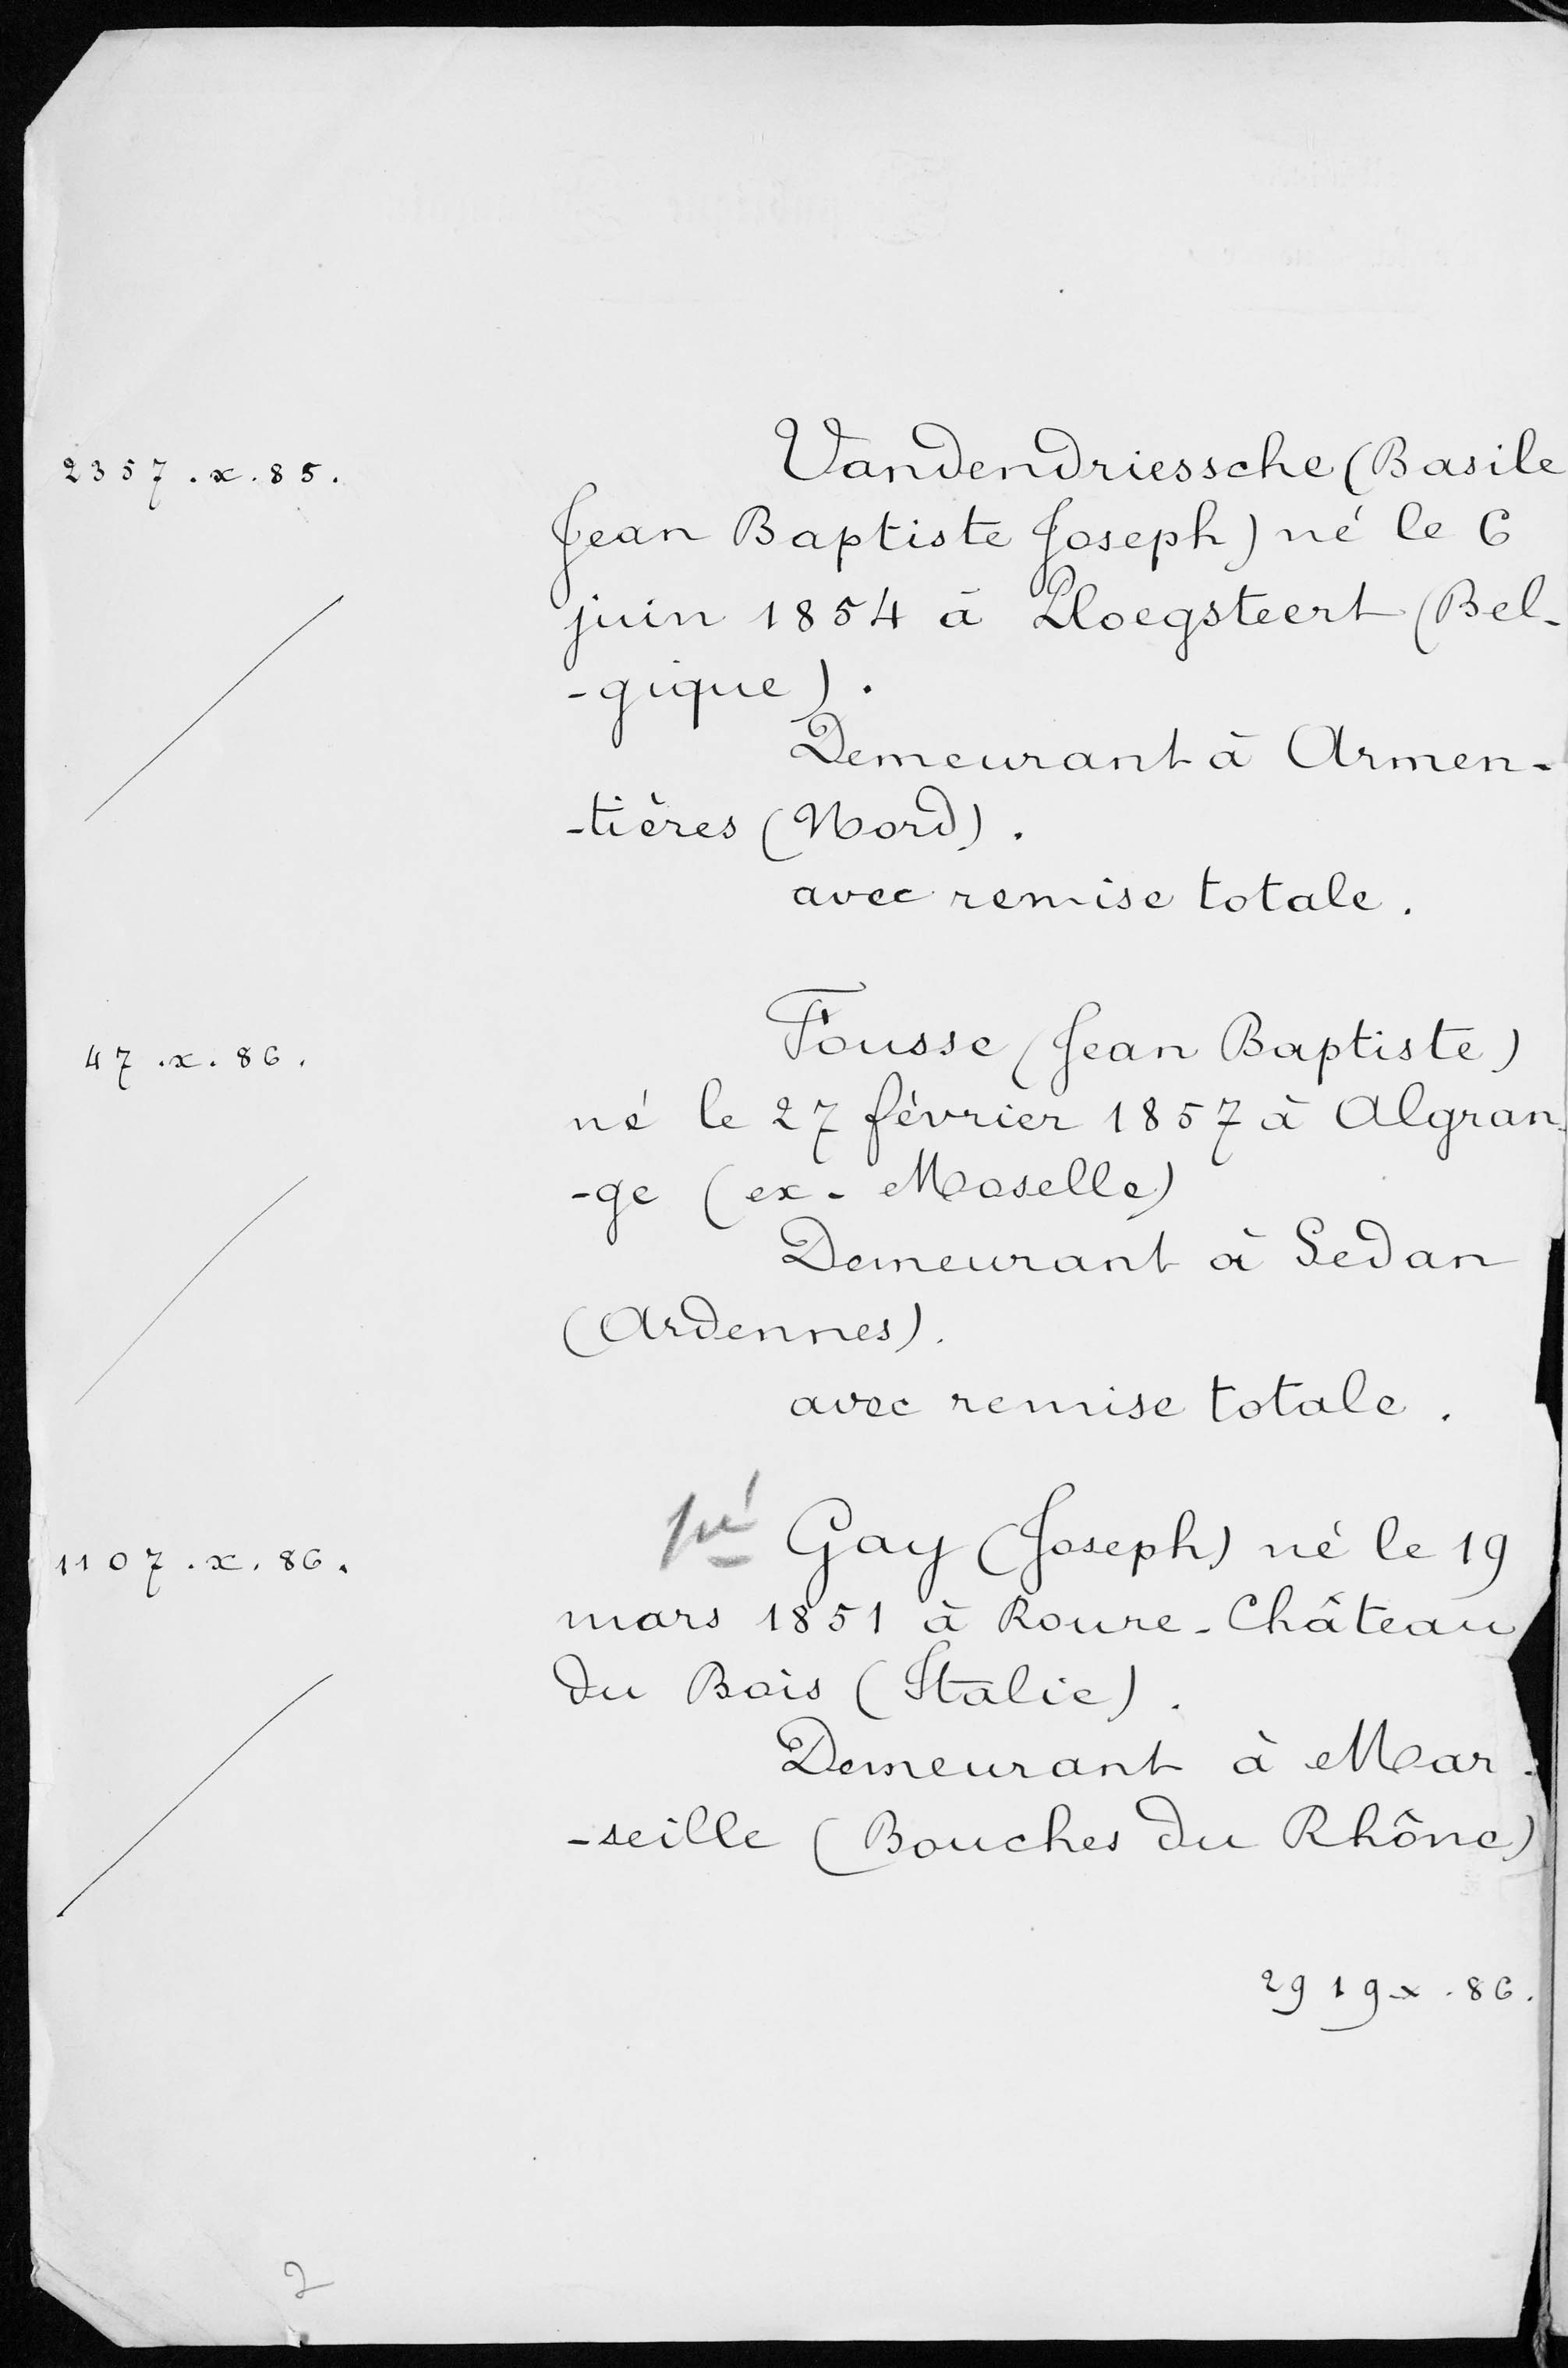 2357.x.85.
Vandendriessche (Basile
Jean Baptiste Joseph) né le 6
juin 1854 à Ploegsteert (Bel-
-gique).
Demeurant à Armen-
-tières (Nord).
avec remise totale.
47.x.86.
Fousse (Jean Baptiste)
né le 27 février 1857 à Algran-
-ge (ex-Moselle)
Demeurant à Sedan
(Ardennes).
avec remise totale.
1107.x.86.
Gay (Joseph) né le 19
mars 1851 à Roure-Château
du Bois (Italie).
Demeurant à Mar-
-seille (Bouches du Rhône)
2919x.86.
2